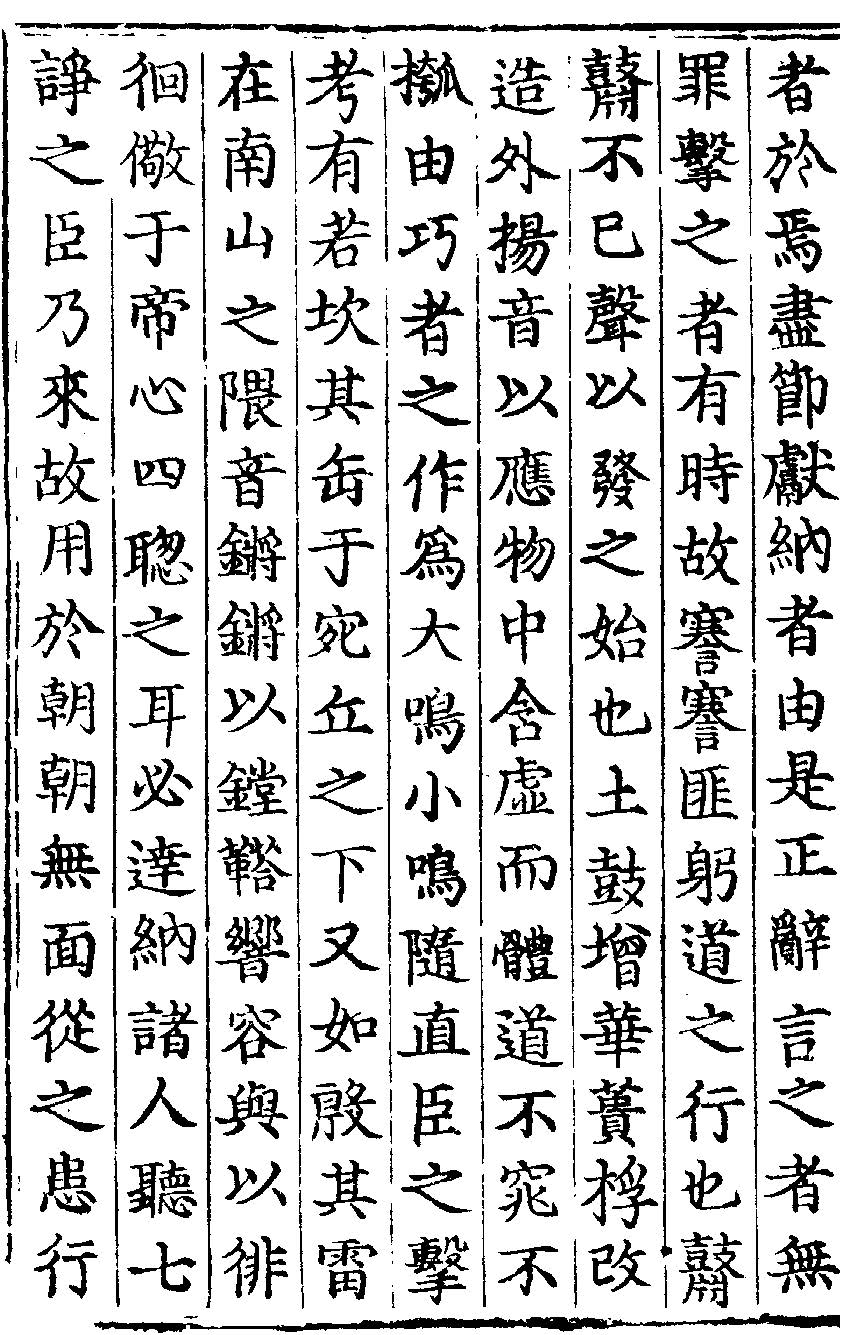 者於焉盡節獻納者由是正辭言之者無
罪擊之者有時故謇謇匪躬道之行也鼖
鼖不已聲以發之始也土鼓增華蕢桴改
造外揚音以應物中含虛而體道不窕不
摦由巧者之作為大鳴小鳴隨直臣之擊
考有若坎其缶于宛丘之下又如殷其雷
在南山之隈音鏘鏘以鏜鞳響容與以徘
徊儆于帝心四聰之耳必達納諸人聽七
諍之臣乃來故用於朝朝無面從之患行